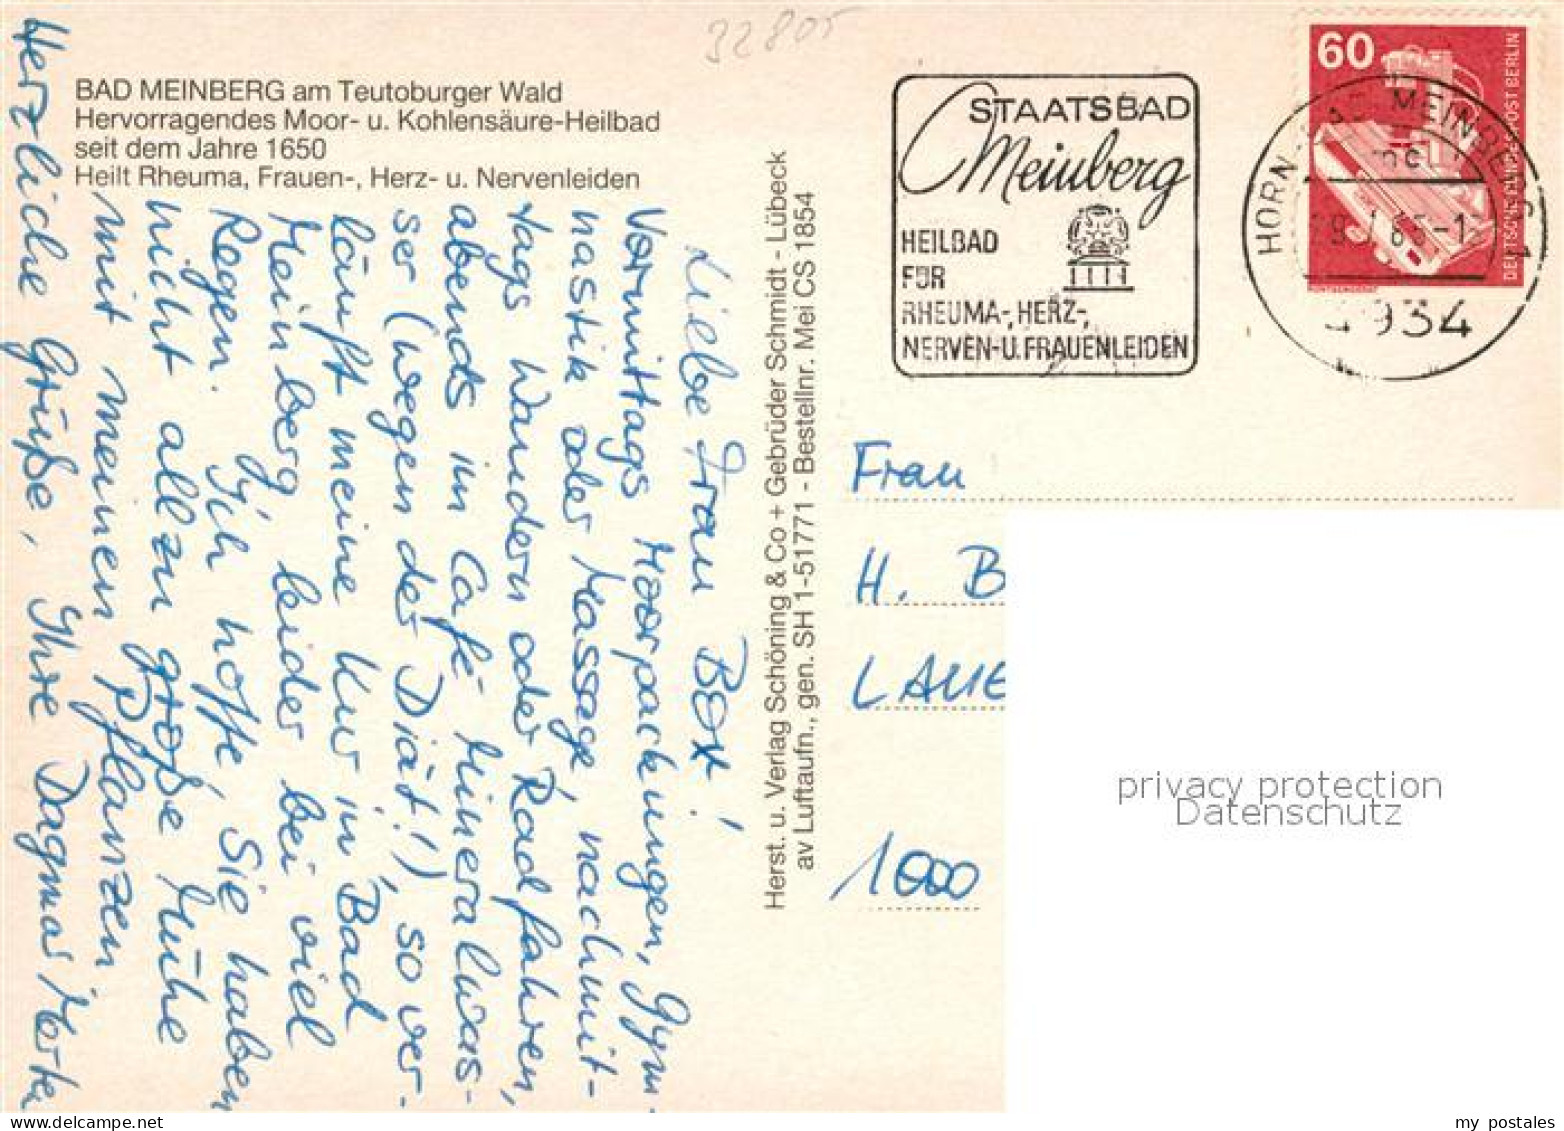 32805
BAD MEINBERG am Teutoburger Wald
Hervorragendes Moor- u. Kohlensäure-Heilbad
seit dem Jahre 1650
Heilt Rheuma, Frauen-, Herz- u. Nervenleiden
Liebe Frau
Vormittags Moorpackungen, Gym-
nastik oder Massage, nachmit-
tags Wandern oder Radfahren,
abends im Café Mineralwas-
ser (wegen der Diät!), so ver-
läuft meine Kur in Bad
Meinberg leider bei viel
Regen. Ich hoffe, Sie haben
nicht allzu große Mühe
mit meinen Pflanzen
Herzliche Grüße, Ihre Dagmar
Herst. u. Verlag Schöning & Co + Gebrüder Schmidt - Lübeck
av Luftaufn., gen. SH 1-51771 - Bestellnr. Mei CS 1854
STAATSBAD
Meinberg
HEILBAD
FÜR
RHEUMA-, HERZ-,
NERVEN-U.FRAUENLEIDEN
60
DEUTSCHE BUNDESPOST BERLIN
HORN-BAD MEINBERG 1
4934
Frau
H. B
LAUE
1000
privacy protection
Datenschutz
my postales